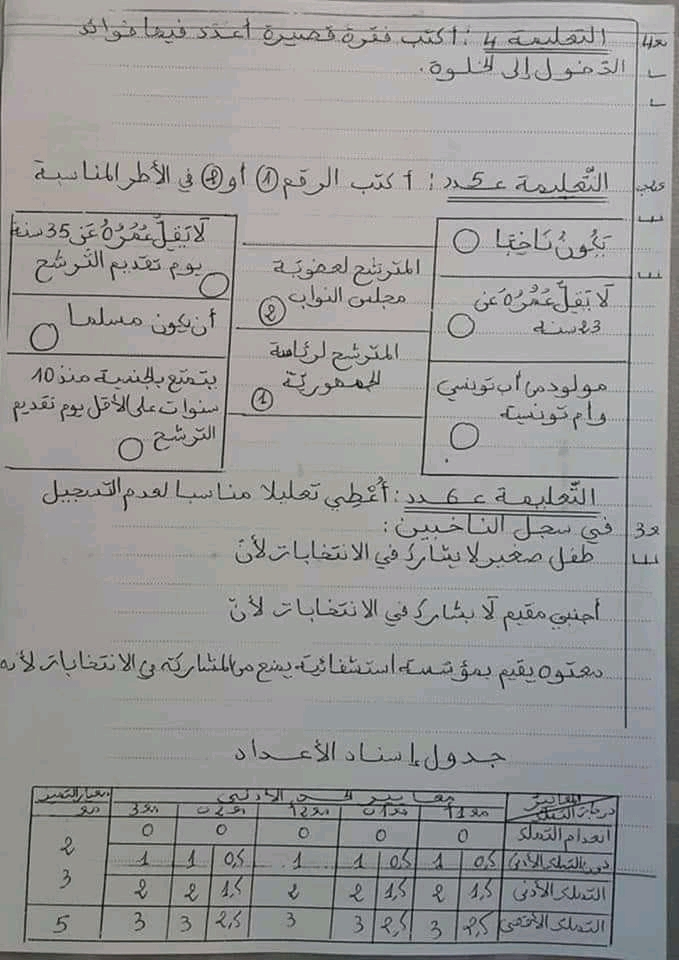 التعليمة 4 : أكتب فقرة قصيرة أعدد فيها فوائد
مع4
الدخول إلى الخلوة.
التّعليمة عـ5ـدد : أكتب الرقم ① أو ② في الأطر المناسبة
يَكُونُ نَاخِبًا
لَا يَقِلُّ عُمُرُهُ عَن
23 سنة
مولود من أب تونسي
وأم تونسية
المترشح لعضوية
مجلس النواب
②
المترشح لرئاسة
الجمهورية
①
لَا يَقِلُّ عُمُرُهُ عَن 35 سنة
يوم تقديم الترشح
أن يكون مسلما
يتمتع بالجنسية منذ 10
سنوات على الأقل يوم تقديم
الترشح
التّعليمة عـ6ـدد : أُعْطِي تعليلا مناسبا لعدم التسجيل
مع3
في سجل الناخبين :
طفل صغير لا يشارك في الانتخابات لأنّ
أجنبي مقيم لا يشارك في الانتخابات لأنّ
معتوه يقيم بمؤسسة استشفائية يمنع من المشاركة في الانتخابات لأنه
جدول إسناد الأعداد
المعايير
درجات التملك
معايير الحد الأدنى
معيار التميز
مع11 مع1 مع12 مع2 مع3
انعدام التملك 0 0 0 0 0
دون التملك الأدنى 0,5 1 0,5 1 1 0,5 1 1 2
التملك الأدنى 1,5 2 1,5 2 2 1,5 2 2 3
التملك الأقصى 2,5 3 2,5 3 3 2,5 3 3 5